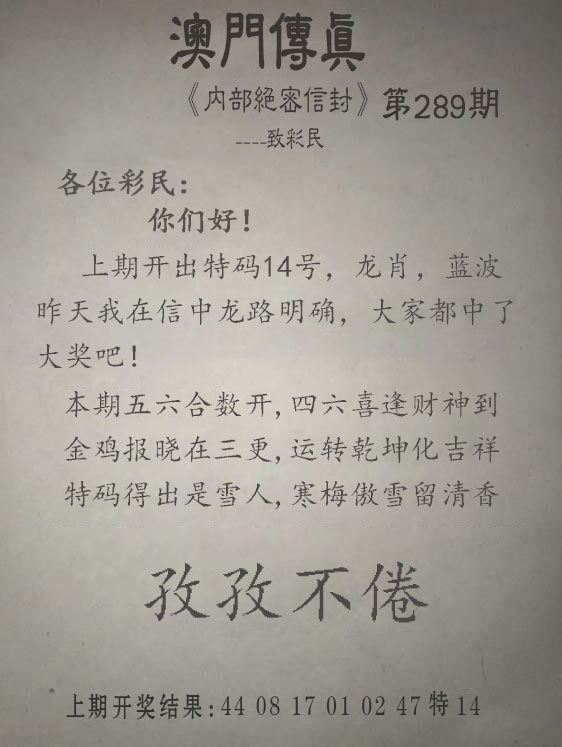 澳門傳眞
《内部絕密信封》第289期
----致彩民
各位彩民：
你们好！
上期开出特码14号，龙肖，蓝波
昨天我在信中龙路明确，大家都中了
大奖吧！
本期五六合数开,四六喜逢财神到
金鸡报晓在三更,运转乾坤化吉祥
特码得出是雪人,寒梅傲雪留清香
孜孜不倦
上期开奖结果:44 08 17 01 02 47特14